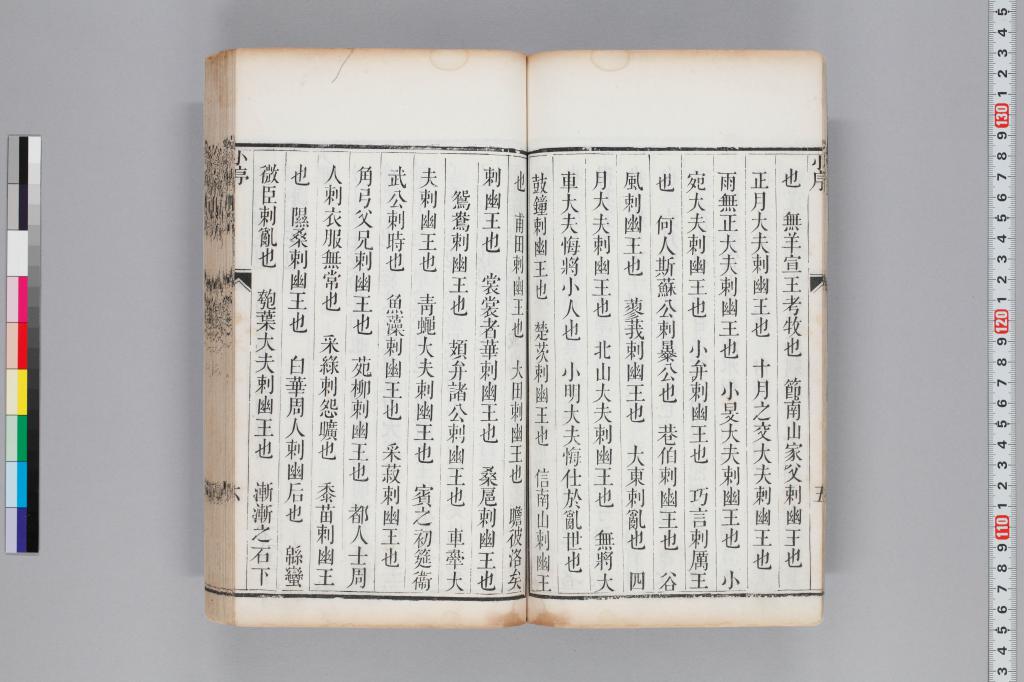 小序
也 無羊宣王考牧也 節南山家父刺幽王也
正月大夫刺幽王也 十月之交大夫刺幽王也
雨無正大夫刺幽王也 小旻大夫刺幽王也 小
宛大夫刺幽王也 小弁刺幽王也 巧言刺厲王
也 何人斯蘇公刺暴公也 巷伯刺幽王也 谷
風刺幽王也 蓼莪刺幽王也 大東刺亂也 四
月大夫刺幽王也 北山大夫刺幽王也 無將大
車大夫悔將小人也 小明大夫悔仕於亂世也
鼓鐘刺幽王也 楚茨刺幽王也 信南山刺幽王
五
也 甫田刺幽王也 大田刺幽王也 瞻彼洛矣
刺幽王也 裳裳者華刺幽王也 桑扈刺幽王也
鴛鴦刺幽王也 頍弁諸公刺幽王也 車舝大
夫刺幽王也 靑蠅大夫刺幽王也 賓之初筵衞
武公刺時也 魚藻刺幽王也 采菽刺幽王也
角弓父兄刺幽王也 菀柳刺幽王也 都人士周
人刺衣服無常也 采綠刺怨曠也 黍苗刺幽王
也 隰桑刺幽王也 白華周人刺幽后也 緜蠻
微臣刺亂也 瓠葉大夫刺幽王也 漸漸之石下
小序
六
5
4
3
2
1
130
9
8
7
6
5
4
3
2
1
120
9
8
7
6
5
4
3
2
1
110
9
8
7
6
5
4
3